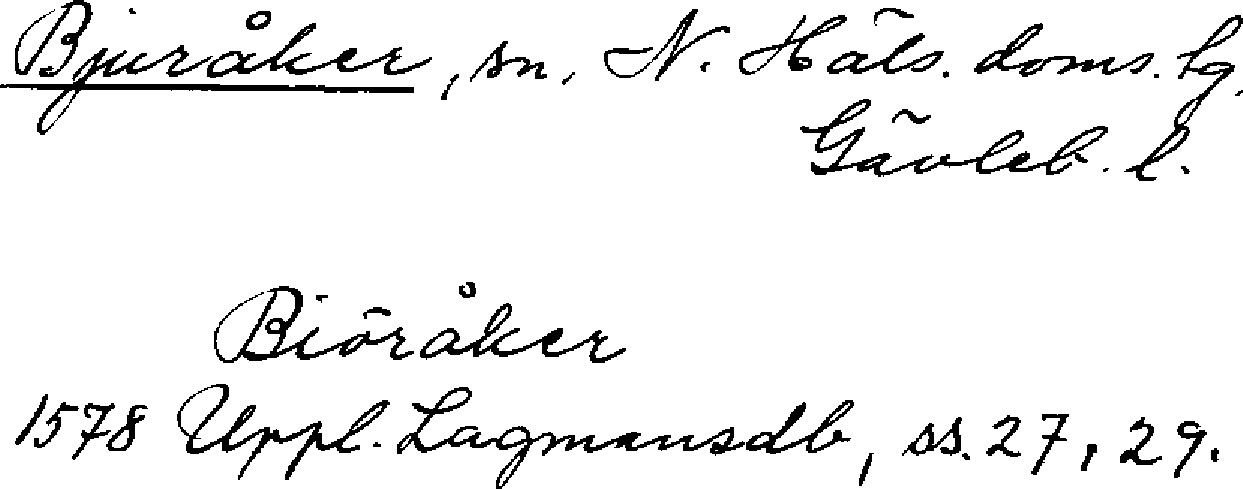 Bjuråker, sn, N. Häls. doms. lg,
Gävleb. l.
Biöråker
1578 Uppl. Lagmansdb, ss. 27, 29.